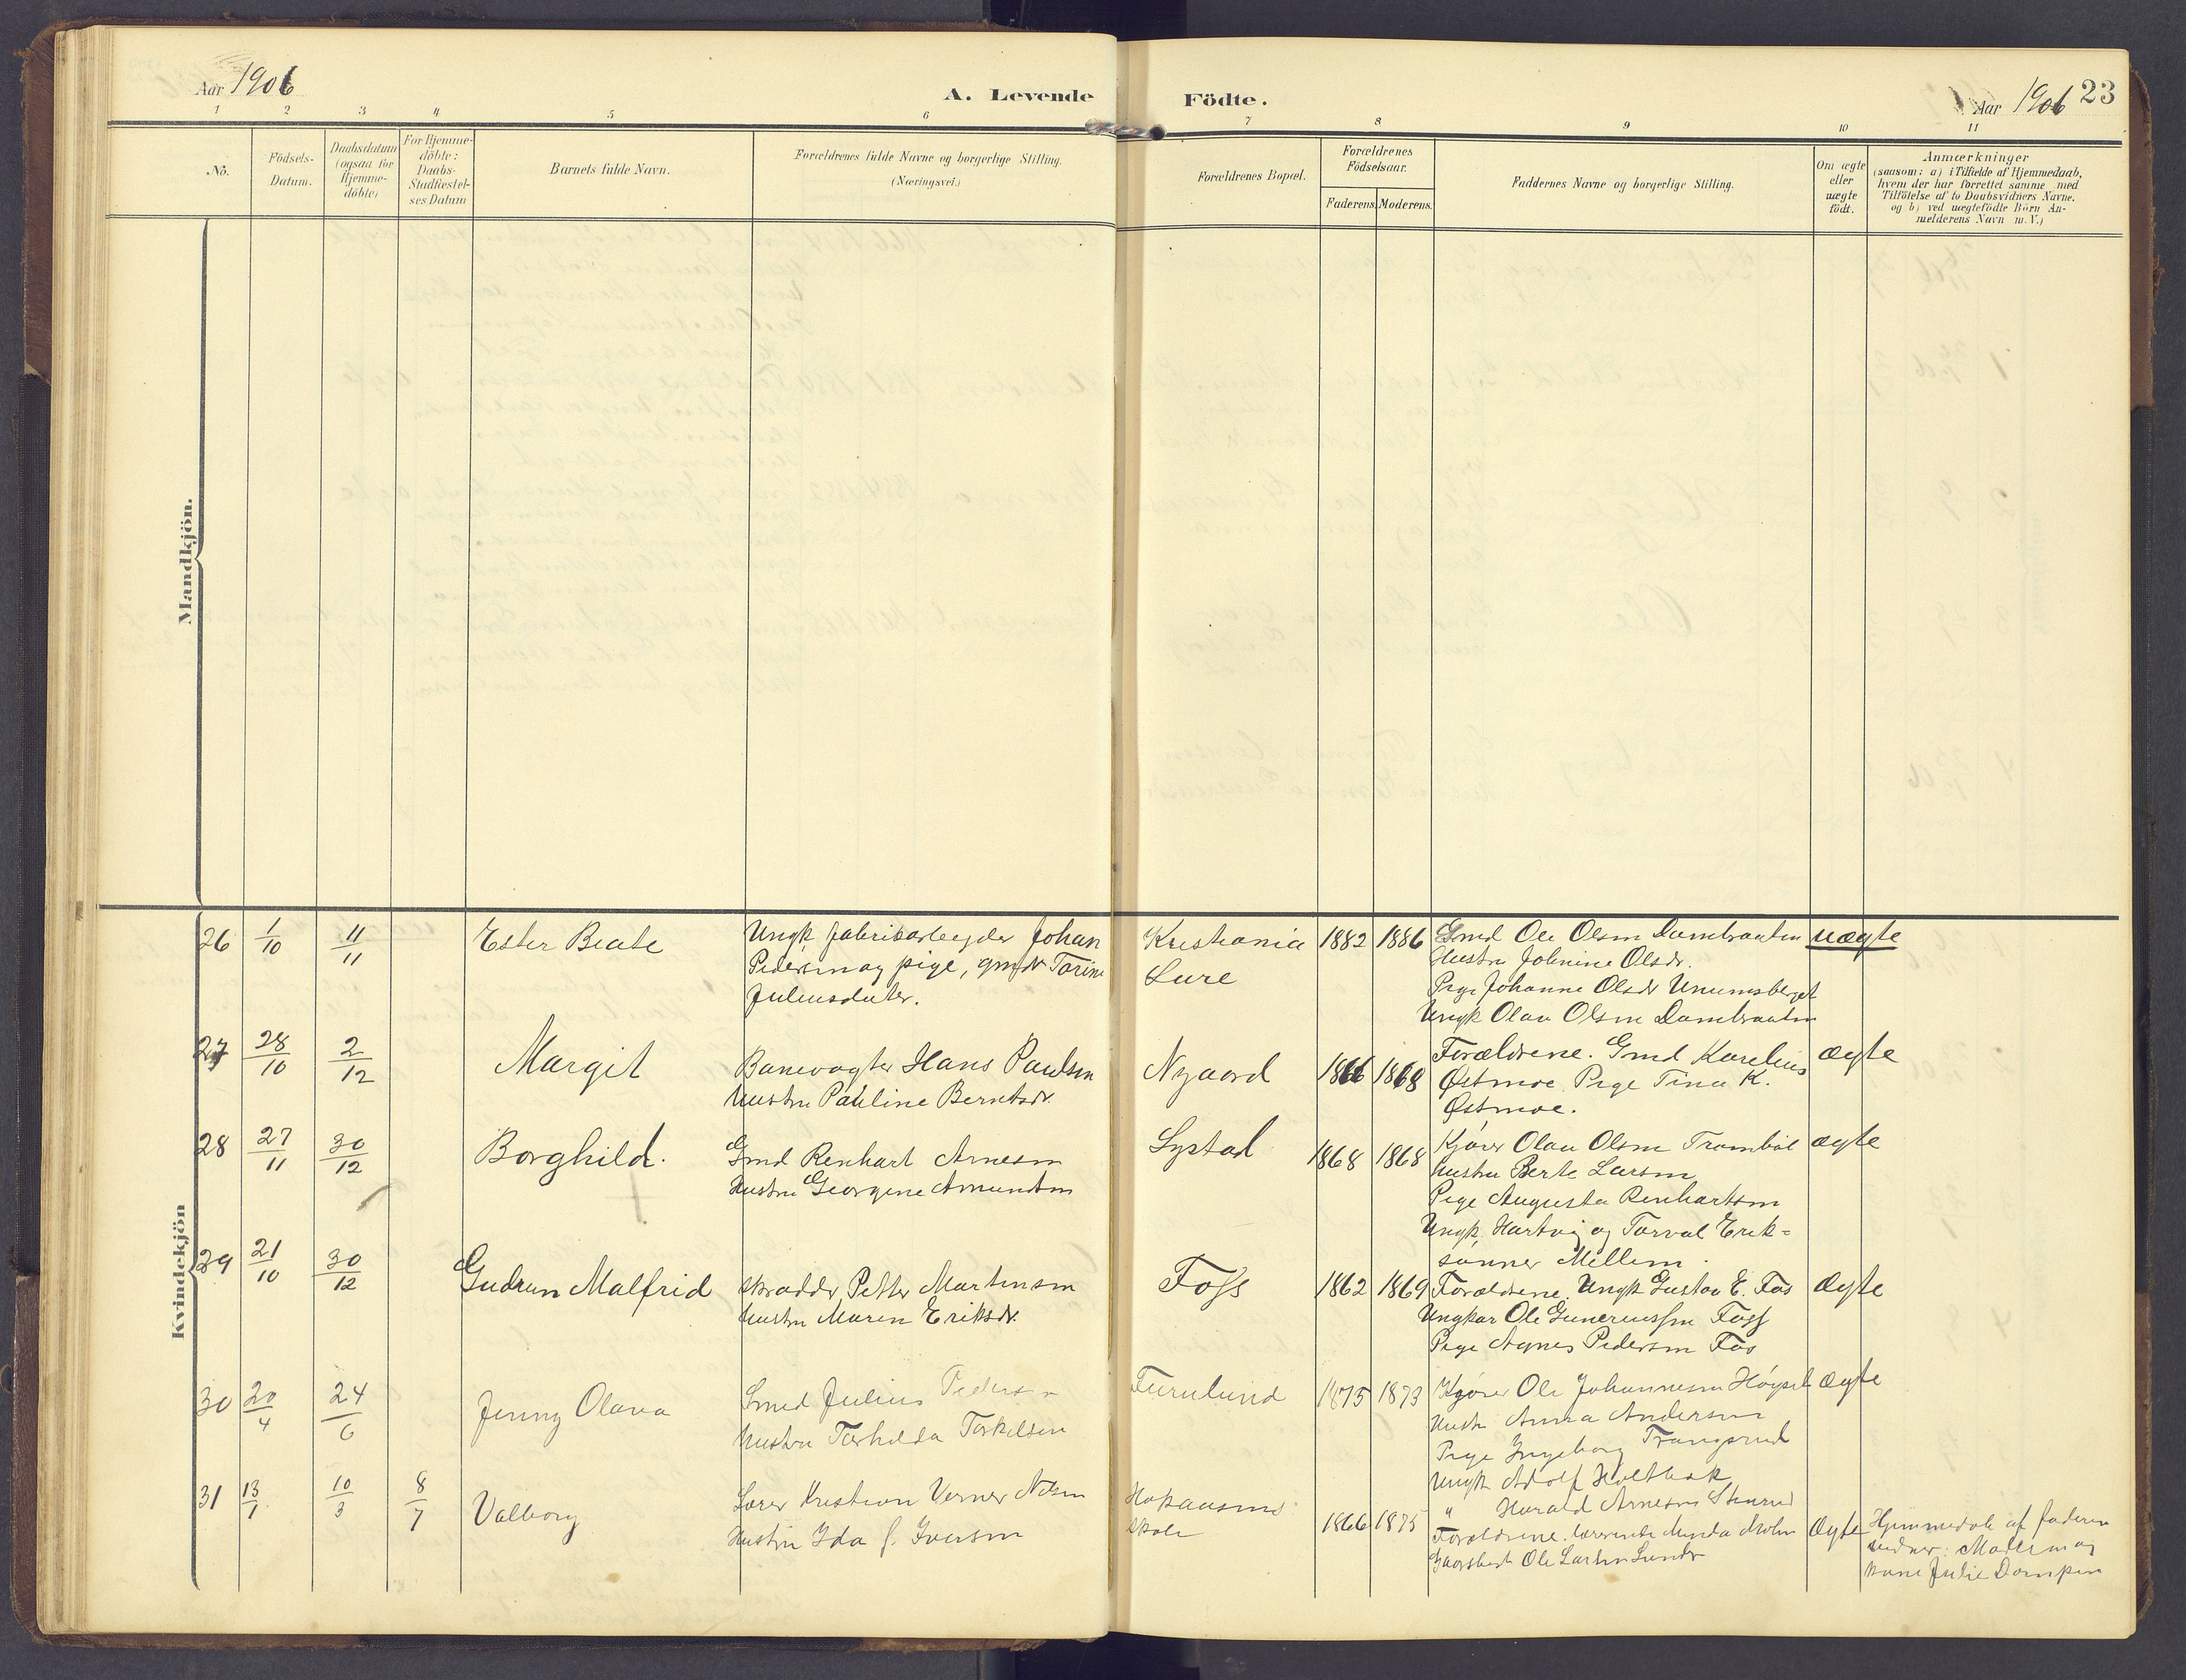 Aar 1906
A. Levende Födte.
Aar 1906 23
1 2 3 4 5 6 7 8 9 10 11
No.
Födsels-
Datum.
Daabsdatum
(ogsaa for
Hjemme-
döbte)
For Hjemme-
döbte:
Daabs-
Stadfæstel-
ses Datum
Barnets fulde Navn.
Forældrenes fulde Navne og borgerlige Stilling.
(Næringsvei.)
Forældrenes Bopæl.
Forældrenes
Födselsaar.
Faderens. Moderens.
Faddernes Navne og borgerlige Stilling.
Om ægte
eller
uægte
födt.
Anmærkninger
(saasom: a) i Tilfælde af Hjemmedaab,
hvem der har forrettet samme med
Tilföielse af to Daabsvidners Navne.
og b) ved uægtefödte Börn An-
melderens Navn m. V.)
Mandkjön.
Kvindekjön
26 1/10 11/11 Ester Beate
Ungk. fabrikarbeyder Johan
Pedersen og pige, gmdr Torine
Juliusdatter.
Kristiania
Lure
1882 1886
Gmd Ole Olsen Dambraaten
Hustru Johnine Olsdr.
Pige Johanne Olsdr Unumsberget
Ungk Olau Olsen Dambraaten
uægte
27 28/10 2/12 Margit
Banevogter Hans Paulsen
Hustru Pauline Berntsdr.
Nygaard
1866 1868
Forældrene. Gmd Karelius
Østmoe Pige Tina K.
Østmoe.
ægte
28 27/11 30/12 Borghild.
Gmd Renhart Arnesen
Hustru Georgine Amundsen
Systad
1868 1868
Kjörer Olau Olsen Tramböl
Hustru Berte Larsen
Pige Augusta Renhartsen
Ungk. Hartvig og Torval Erik-
sönner Mellem.
ægte
29 21/10 30/12 Gudrun Malfrid
Skrædder Petter Martinsen
Hustru Maren Eriksdr.
Foss
1862 1869
Forældrene. Ungk Gustav E. Fos
Ungkar Ole Guneriussen Foss
Pige Agnes Pedersen Fos
Ægte
30 20/4 24/6 Jenny Olava
Smed Julius Pedersen
Hustru Torhilda Torkelsen
Furulund
1875 1873
Kjörer Ole Johannesen Höyset
Hustr Anna Andersen
Pige Ingeborg Trangsrud
Ungk Adolf Holtbæk
" Harald Arnesen Stenrud
ægte
31 13/1 10/3 8/7 Valborg
Lærer Kristian Verner Nilsen
Hustru Ida J. Iversen
Hokaasens
Skole
1866 1875
Forældrene. Lærerinde Amda Moten
Gaardbr Ole Larsen Sundr
Ægte
Hjemmedöb af faderen
vidner: Moderen og
kone Julie Dampen